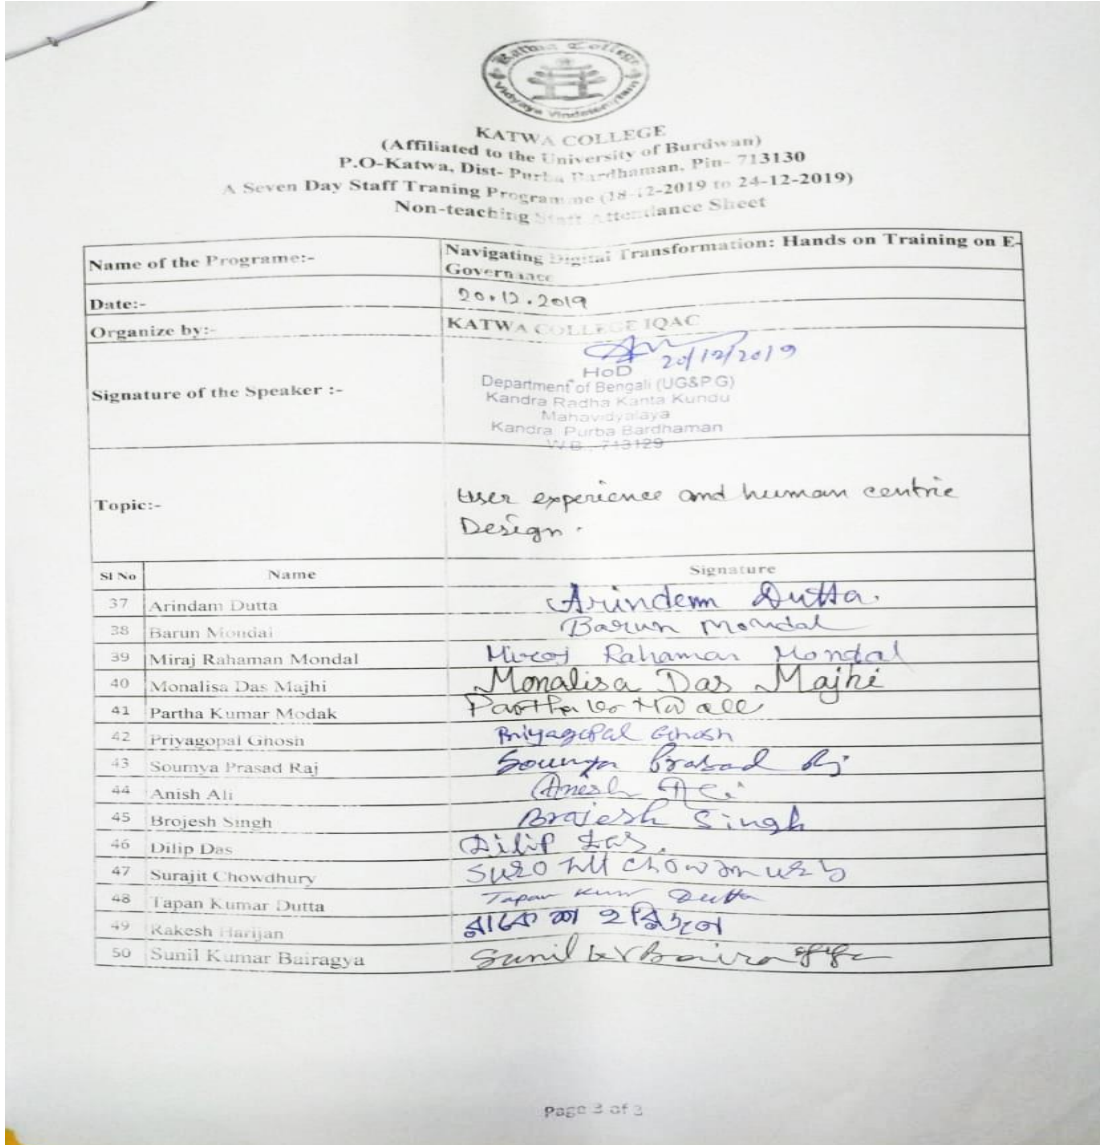 Katwa College
Vidyaya Vindateamritam
KATWA COLLEGE
(Affiliated to the University of Burdwan)
P.O-Katwa, Dist- Purba Bardhaman, Pin- 713130
A Seven Day Staff Traning Programme (18-12-2019 to 24-12-2019)
Non-teaching Staff Attendance Sheet
Name of the Programe:- Navigating Digital Transformation: Hands on Training on E-
Governance
Date:- 20.12.2019
Organize by:- KATWA COLLEGE IQAC
20/12/2019
HoD
Department of Bengali (UG&P.G)
Signature of the Speaker :- Kandra Radha Kanta Kundu
Mahavidyalaya
Kandra, Purba Bardhaman
W.B., 713129
Topic:- User experience and human centric
Design.
Sl No Name Signature
37 Arindam Dutta Arindam Dutta.
38 Barun Mondal Barun Mondal
39 Miraj Rahaman Mondal Miraj Rahaman Mondal
40 Monalisa Das Majhi Monalisa Das Majhi
41 Partha Kumar Modak Partha
42 Priyagopal Ghosh Priyagopal Ghosh
43 Soumya Prasad Raj Soumya Prasad Raj
44 Anish Ali Anish Ali
45 Brojesh Singh Brajesh Singh
46 Dilip Das Dilip Das.
47 Surajit Chowdhury Chowdhury
48 Tapan Kumar Dutta Tapan Kumar Dutta
49 Rakesh Harijan রাকেশ হরিজন
50 Sunil Kumar Bairagya Sunil Kr Bairagya
Page 3 of 3